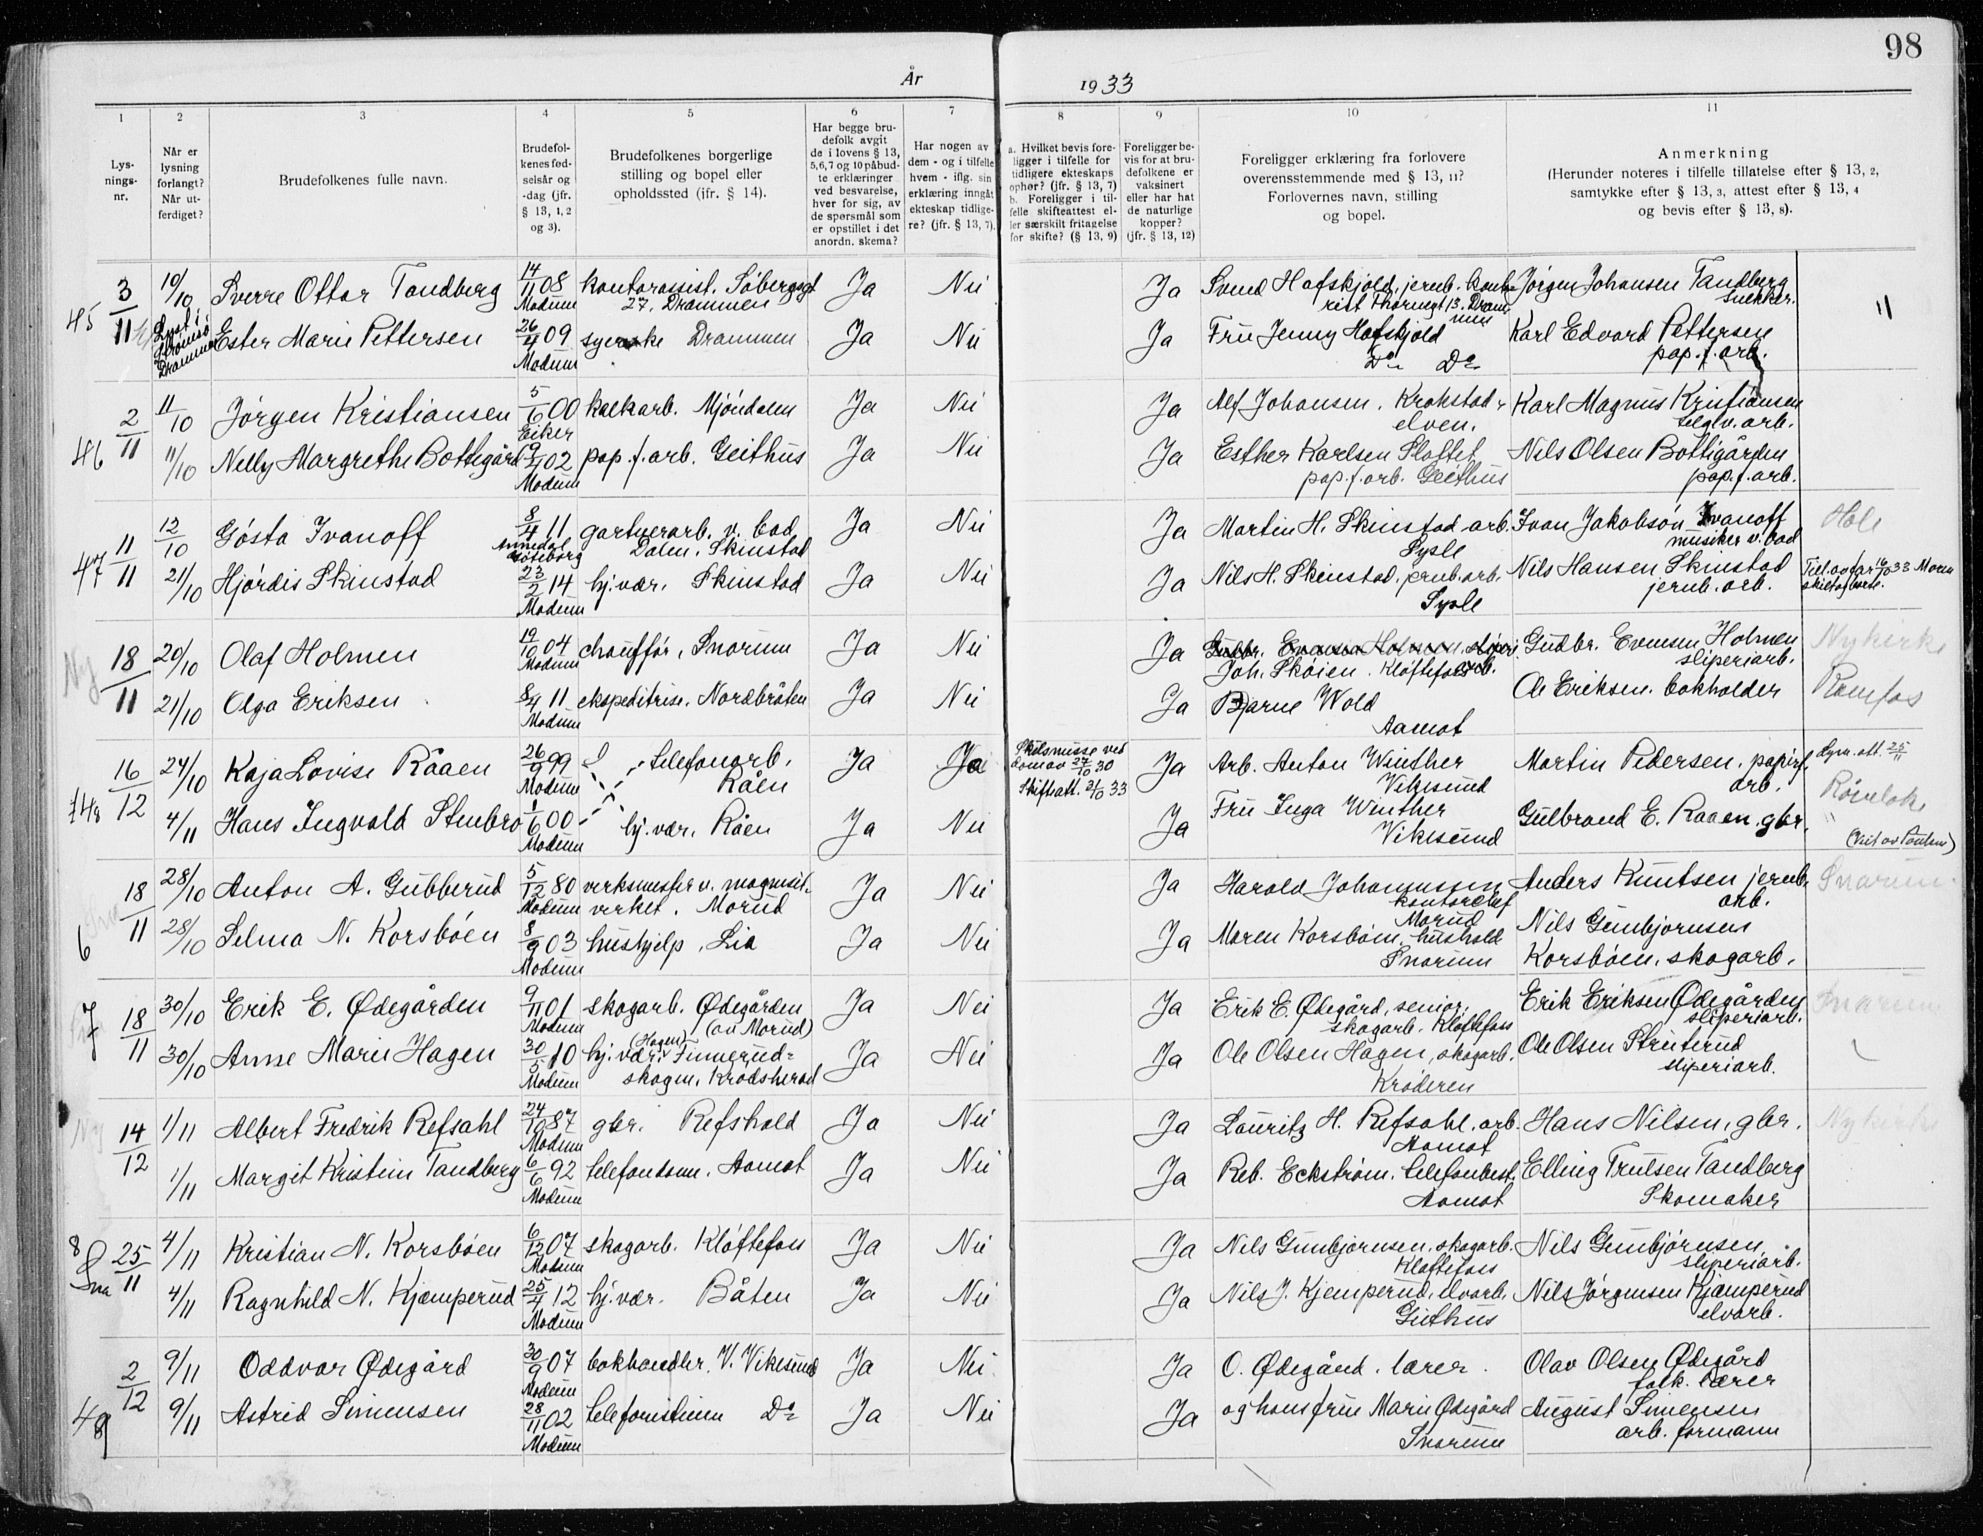 98
År 1933
1 2 3 4 5 6 7 8 9 10 11
Lys-
nings-
nr.
Når er
lysning
forlangt?
Når ut-
ferdiget?
Brudefolkenes fulle navn.
Brudefol-
kenes fød-
selsår og
-dag (jfr.
§ 13, 1, 2
og 3).
Brudefolkenes borgerlige
stilling og bopel eller
opholdssted (jfr. § 14).
Har begge bru-
defolk avgit
de i lovens § 13,
5,6,7 og 10 påbud-
te erklæringer
ved besvarelse,
hver for sig, av
de spørsmål som
er opstillet i det
anordn. skema?
Har nogen av
dem - og i tilfelle
hvem - iflg. sin
erklæring inngåt
ekteskap tidlige-
re? (jfr. § 13, 7).
a. Hvilket bevis fore-
ligger i tilfelle for
tidligere ekteskaps
ophør? (jfr. § 13, 7)
b. Foreligger i til-
felle skifteattest el-
ler særskilt fritagelse
for skifte? (§ 13, 9)
Foreligger be-
vis for at bru-
defolkene er
vaksinert
eller har hat
de naturlige
kopper?
(jfr. § 13, 12)
Foreligger erklæring fra forlovere
overensstemmende med § 13, 11?
Forlovernes navn, stilling
og bopel.
Anmerkning
(Herunder noteres i tilfelle tillatelse efter § 13, 2,
samtykke efter § 13, 3, attest efter § 13, 4
og bevis efter § 13, 8).
45 3/11 19/10 Sverre Ottar Tandberg 14/11 08 Modum kontorassist. Söbergsgt 27. Drammen Ja Nei Ja Svend Hafskjold, jernb. konto-
rist Thornegt 13. Dram-
men
Jørgen Johansen Tandberg
snekker.
11
Lyst i
Strømsö
Drammen
Ester Marie Pettersen 26/4 09 Modum syerske Drammen Ja Nei Ja Fru Jenny Hafskjold
Do Do
Karl Edvard Pettersen
pap. f. arb.
46 2/11 11/10 Jörgen Kristiansen 5/6 00 Eiker kalkarb. Mjöndalen Ja Nei Ja Alf Johansen. Krokstad-
elven.
Karl Magnus Kristiansen
teglv. arb.
11/10 Nelly Margrethe Bottegård 02 Modum pap. f. arb. Geithus Ja Nei Ja Esther Karlsen Slottet
pap. f. arb. Geithus
Nils Olsen Bottigården
pap. f. arb.
47 11/11 12/10 Gösta Ivanoff 8/4 11 Annedal Göteborg gartnerarb. v. bad
Dalen, Skinstad Ja Nei Ja Martin H. Skinstad arb.
Sysle
Ivan Jakobson Ivanoff
musiker v. bad
Hole
21/10 Hjördis Skinstad 23/2 14 Modum hj. vær. Skinstad Ja Nei Ja Nils H. Skinstad, jernb. arb.
Sysle
Nils Hansen Skinstad
jernb. arb.
Ny 18/11 20/10 Olaf Holmen 19/10 04 Modum chauffør, Snarum Ja Nei Ja Gudbr. Evensen Holmen, sliperi
Joh. Sköien. Kløftefoss
Gudbr. Evensen Holmen
sliperiarb.
Nykirke
21/10 Olga Eriksen 8/4 11 Modum ekspeditrise. Nordbråten Ja Nei Ja Bjarne Wold
Aamot
Ole Eriksen. bokholder
Ramfos
148 16/12 24/10 Kaja Lovise Råaen 26/9 99 Modum telefonarb.
Råen Ja Ja Skilsmisse ved
dom av 27/10 30
Skifteatt. 2/10 33
Ja Arb. Anton Winther
Vikesund
Martin Pedersen. papirf.
arb.
Lysn. att. 25/11
4/11 Hans Ingvald Stenbro 1/6 00 Modum hj. vær. Råen Ja Nei Ja Fru Inga Winther
Vikesund
Gulbrand E. Raaen. gbr.
6 18/11 28/10 Anton A. Gubberud 5/12 80 Modum verksmester v. magnesit-
verket. Morud Ja Nei Ja Harald Johannessen
kontorchef
Morud
Anders Knutsen jernb.
arb.
Snarum
28/10 Selma N. Korsbøen 8/9 03 Modum hushjelp, Lia Ja Nei Ja Maren Korsbøen, hushold
Snarum
Nils Gunbjørnsen
Korsbøen, skogarb.
7 18/11 30/10 Erik E. Ødegården 9/11 01 Modum skogarb. Ødegården
(au Morud) Ja Nei Ja Erik E. Ødegård, senior,
skogarb. Kløftefoss
Erik Eriksen Ødegården
sliperiarb.
Snarum
30/10 Anne Marie Hagen 30/5 10 Modum hj. vær. (Hagen) Finnerud-
skogen, Krødsherad Ja Nei Ja Ole Olsen Hagen, skogarb.
Krøderen
Ole Olsen Struterud
sliperiarb.
Ny 14/12 1/11 Albert Fredrik Refsahl 24/10 87 Modum gbr. Refshold Ja Nei Ja Lauritz H. Refsahl. arb.
Aamot
Hans Nilsen, gbr.
Nykirke
1/11 Margit Kristine Tandberg 6/6 92 Modum telefondame. Aamot Ja Nei Ja Reb. Eckstrøm. telefonbest.
Aamot
Elling Trulsen Tandberg
Skomaker
8 Sna 25/11 4/11 Kristian N. Korsbøen 6/12 07 Modum skogarb. Kløftefoss Ja Nei Ja Nils Gunbjørnsen, skogarb.
Kløftefoss
Nils Gunbjørnsen,
sliperiarb.
4/11 Ragnhild N. Kjæmperud 25/4 12 Modum hj. vær. Båten Ja Nei Ja Nils J. Kjemperud, elvarb.
Geithus
Nils Jørgensen Kjæmperud
elvarb.
49 2/12 9/11 Oddvar Ødegård 30/9 07 Modum bokhandler. V. Vikesund Ja Nei Ja O. Ødegård. lærer.
Olav Olsen Ødegård
folk. lærer
9/11 Astrid Simensen 28/11 02 Modum telefonistinne Do Ja Nei Ja og hans frue Marie Ødegård
Snarum
August Simensen
arb. formann